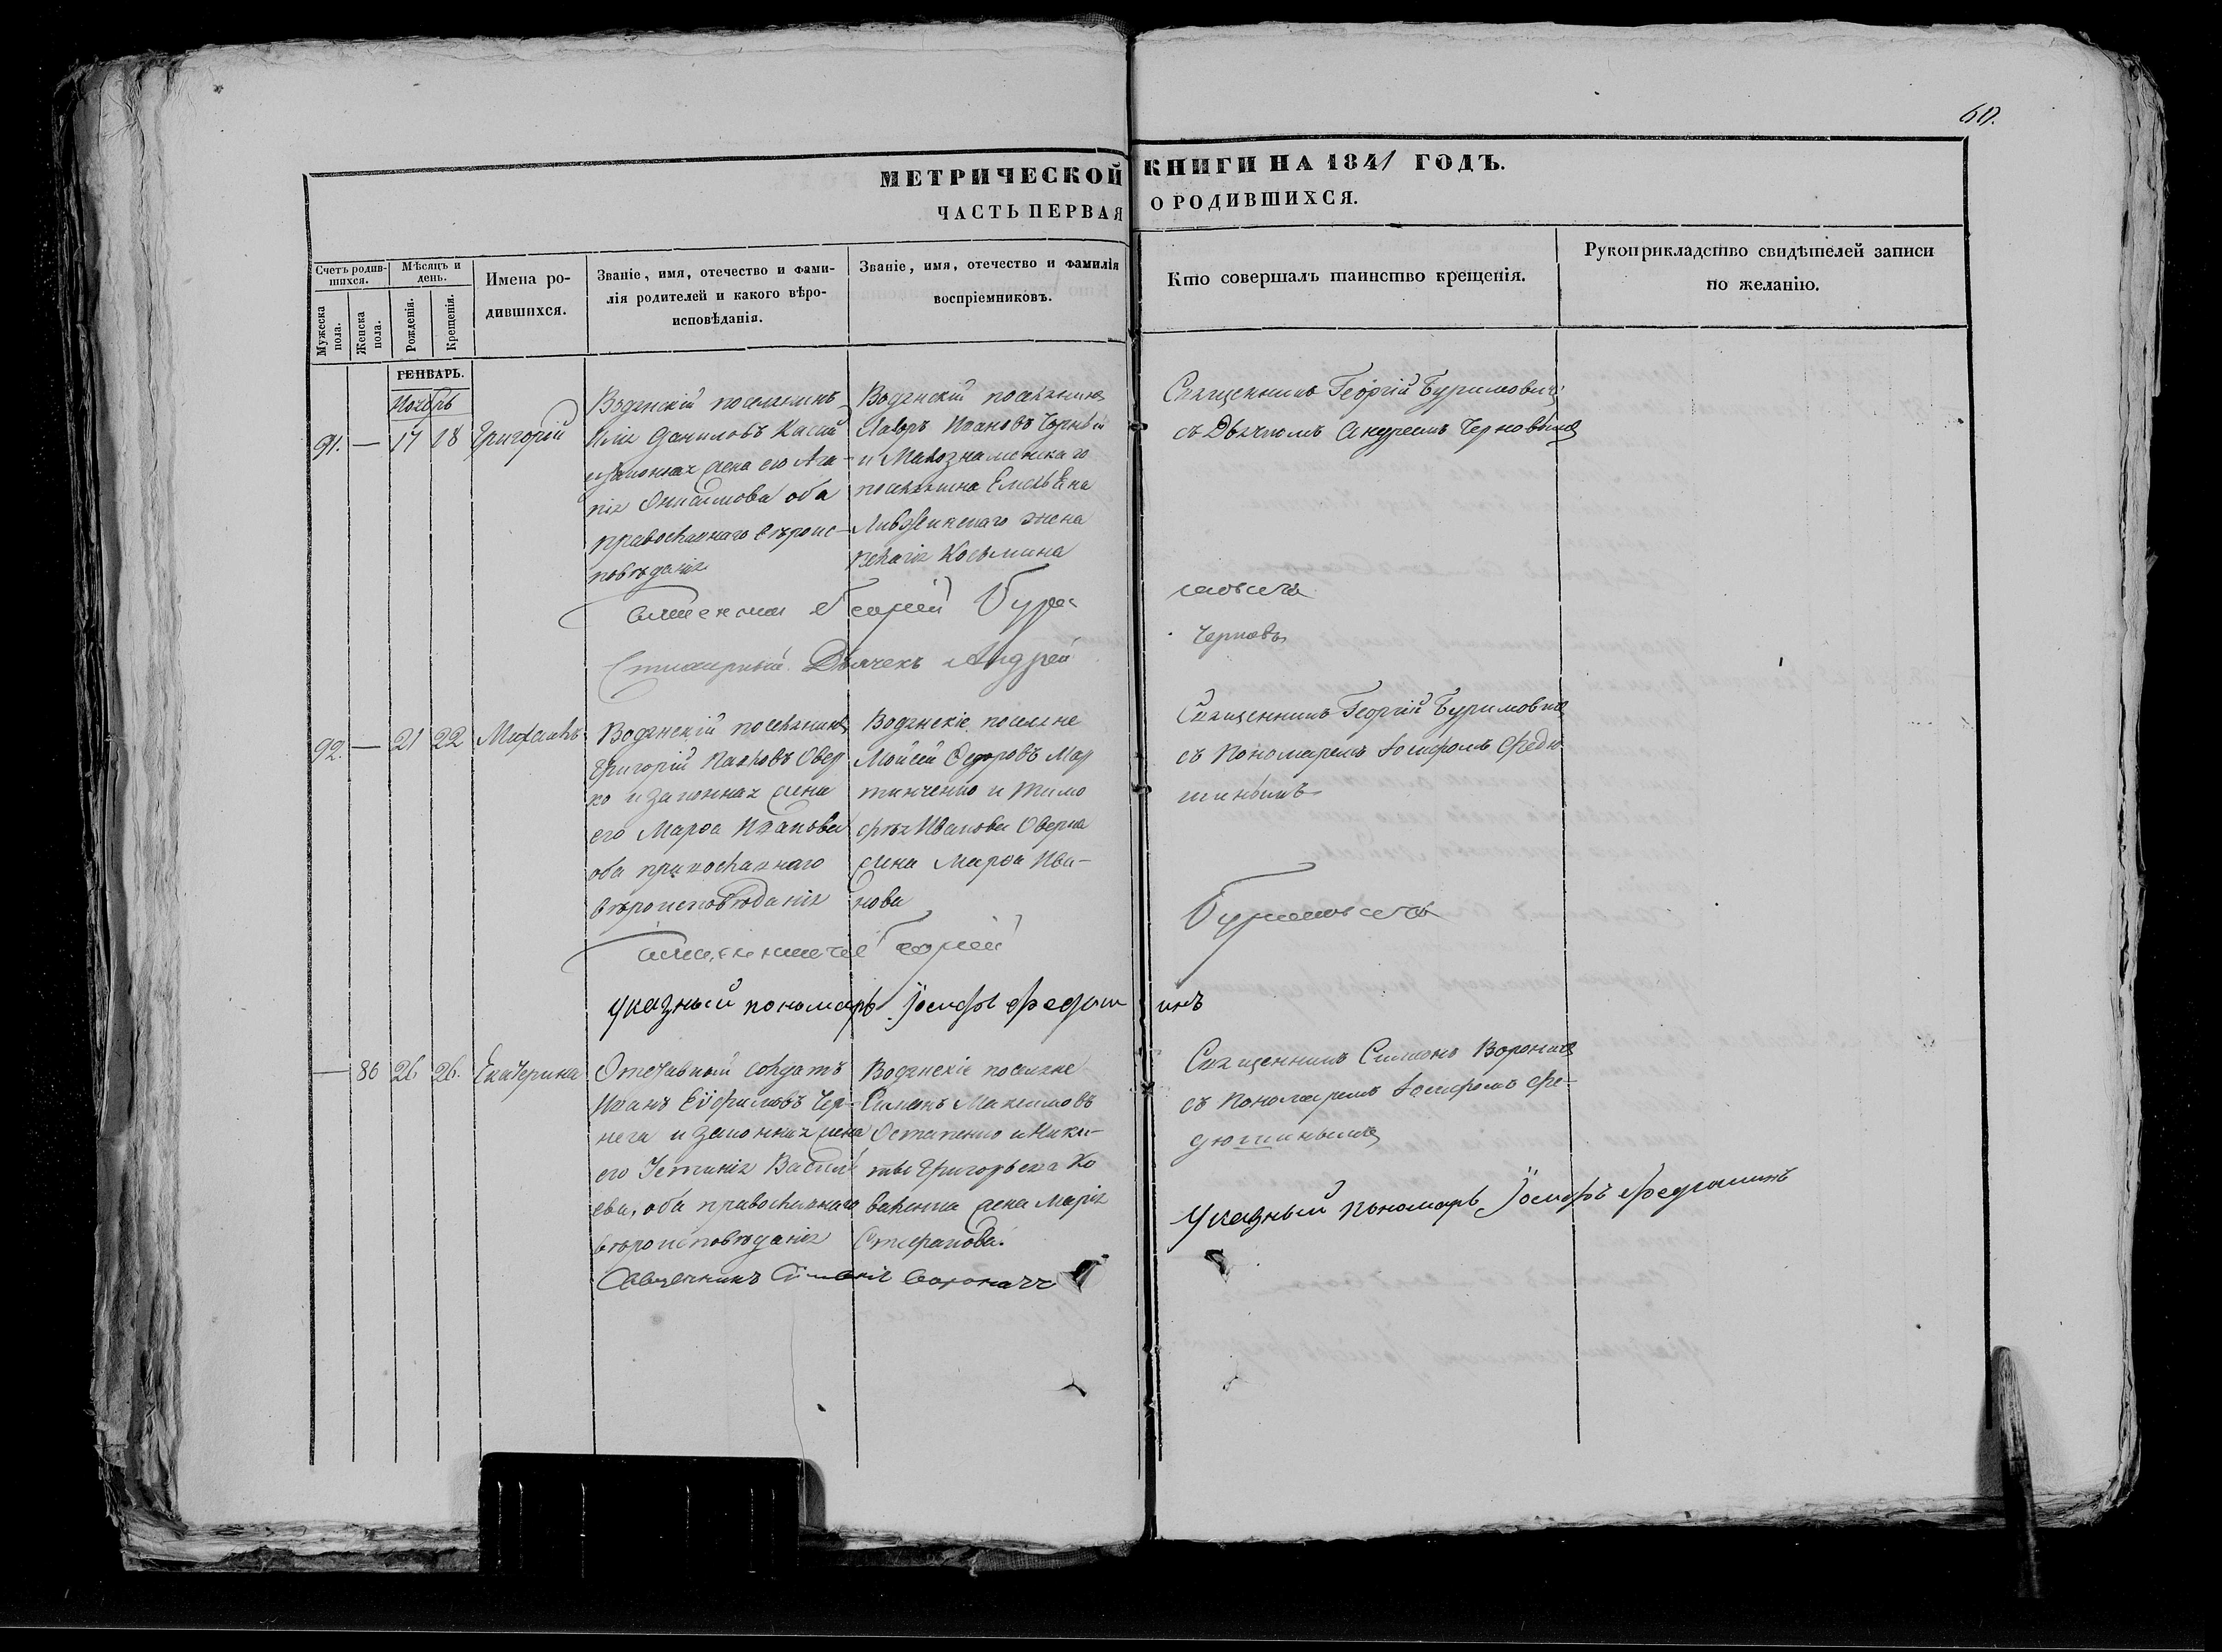 60.
МЕТРИЧЕСКОЙ КНИГИ НА 1841 ГОДЪ.
ЧАСТЬ ПЕРВАЯ О РОДИВШИХСЯ.
Счетъ родившихся.
Мужеска пола.
Женска пола.
Мѣсяцъ и день.
Рожденія.
Крещенія.
Имена родившихся.
Званіе, имя, отечество и фами-
лія родителей и какого вѣро-
исповѣданія.
Званіе, имя, отечество и фамилія
воспріемниковъ.
Кто совершалъ таинство крещенія.
Рукоприкладство свидѣтелей записи
по желанію.
ГЕНВАРЬ.
Ноябрь
91. — 17 18 Григорій
Водянскій поселянинъ
Илія Даниловъ Касай
и законная жена его Ага-
пія Онисимова оба
православнаго вѣроис-
повѣданія
Водянскій поселянинъ
Лавръ Ивановъ Чорный
и Малознаменскаго
поселянина Емельяна
жена
Пелагія Косьмина
Священникъ Георгій Буримовичъ
съ Дьячкомъ Андреемъ Черновымъ
Священникъ Георгій Буримовичъ
Стихарный Дьячекъ Андрей Черновъ
92. — 21 22 Михаилъ
Водянскій поселянинъ
Григорій Павловъ Овер
ко и законная жена
его Марѳа Иванова
оба православнаго
вѣроисповѣданія
Водянскіе поселяне
Мойсей Ѳедоровъ Мар
тинченко и Тимо
фея Иванова Оверка
жена Марѳа Ива-
нова
Священникъ Георгій Буримовичъ
съ Пономаремъ Іосифомъ Федю
шинымъ
Священникъ Георгій Буримовичъ
Указный пономарь Іосифъ Федюшинъ
— 86 26 26. Екатерина
Отставный солдатъ
Иванъ Евфимовъ Чер-
нега и законная жена
его Устинія Василі
ева, оба православнаго
вѣроисповѣданія
Водянскіе поселяне
Симеонъ Максимовъ
Остапенко и Ники-
ты Григорьева Ко
валенка жена Марія
Стефанова.
Священникъ Симеонъ Вороничъ
съ Пономаремъ Іосифомъ Фе-
дюшинымъ
Священникъ Симеонъ Вороничъ
Указный пономарь Іосифъ Федюшинъ